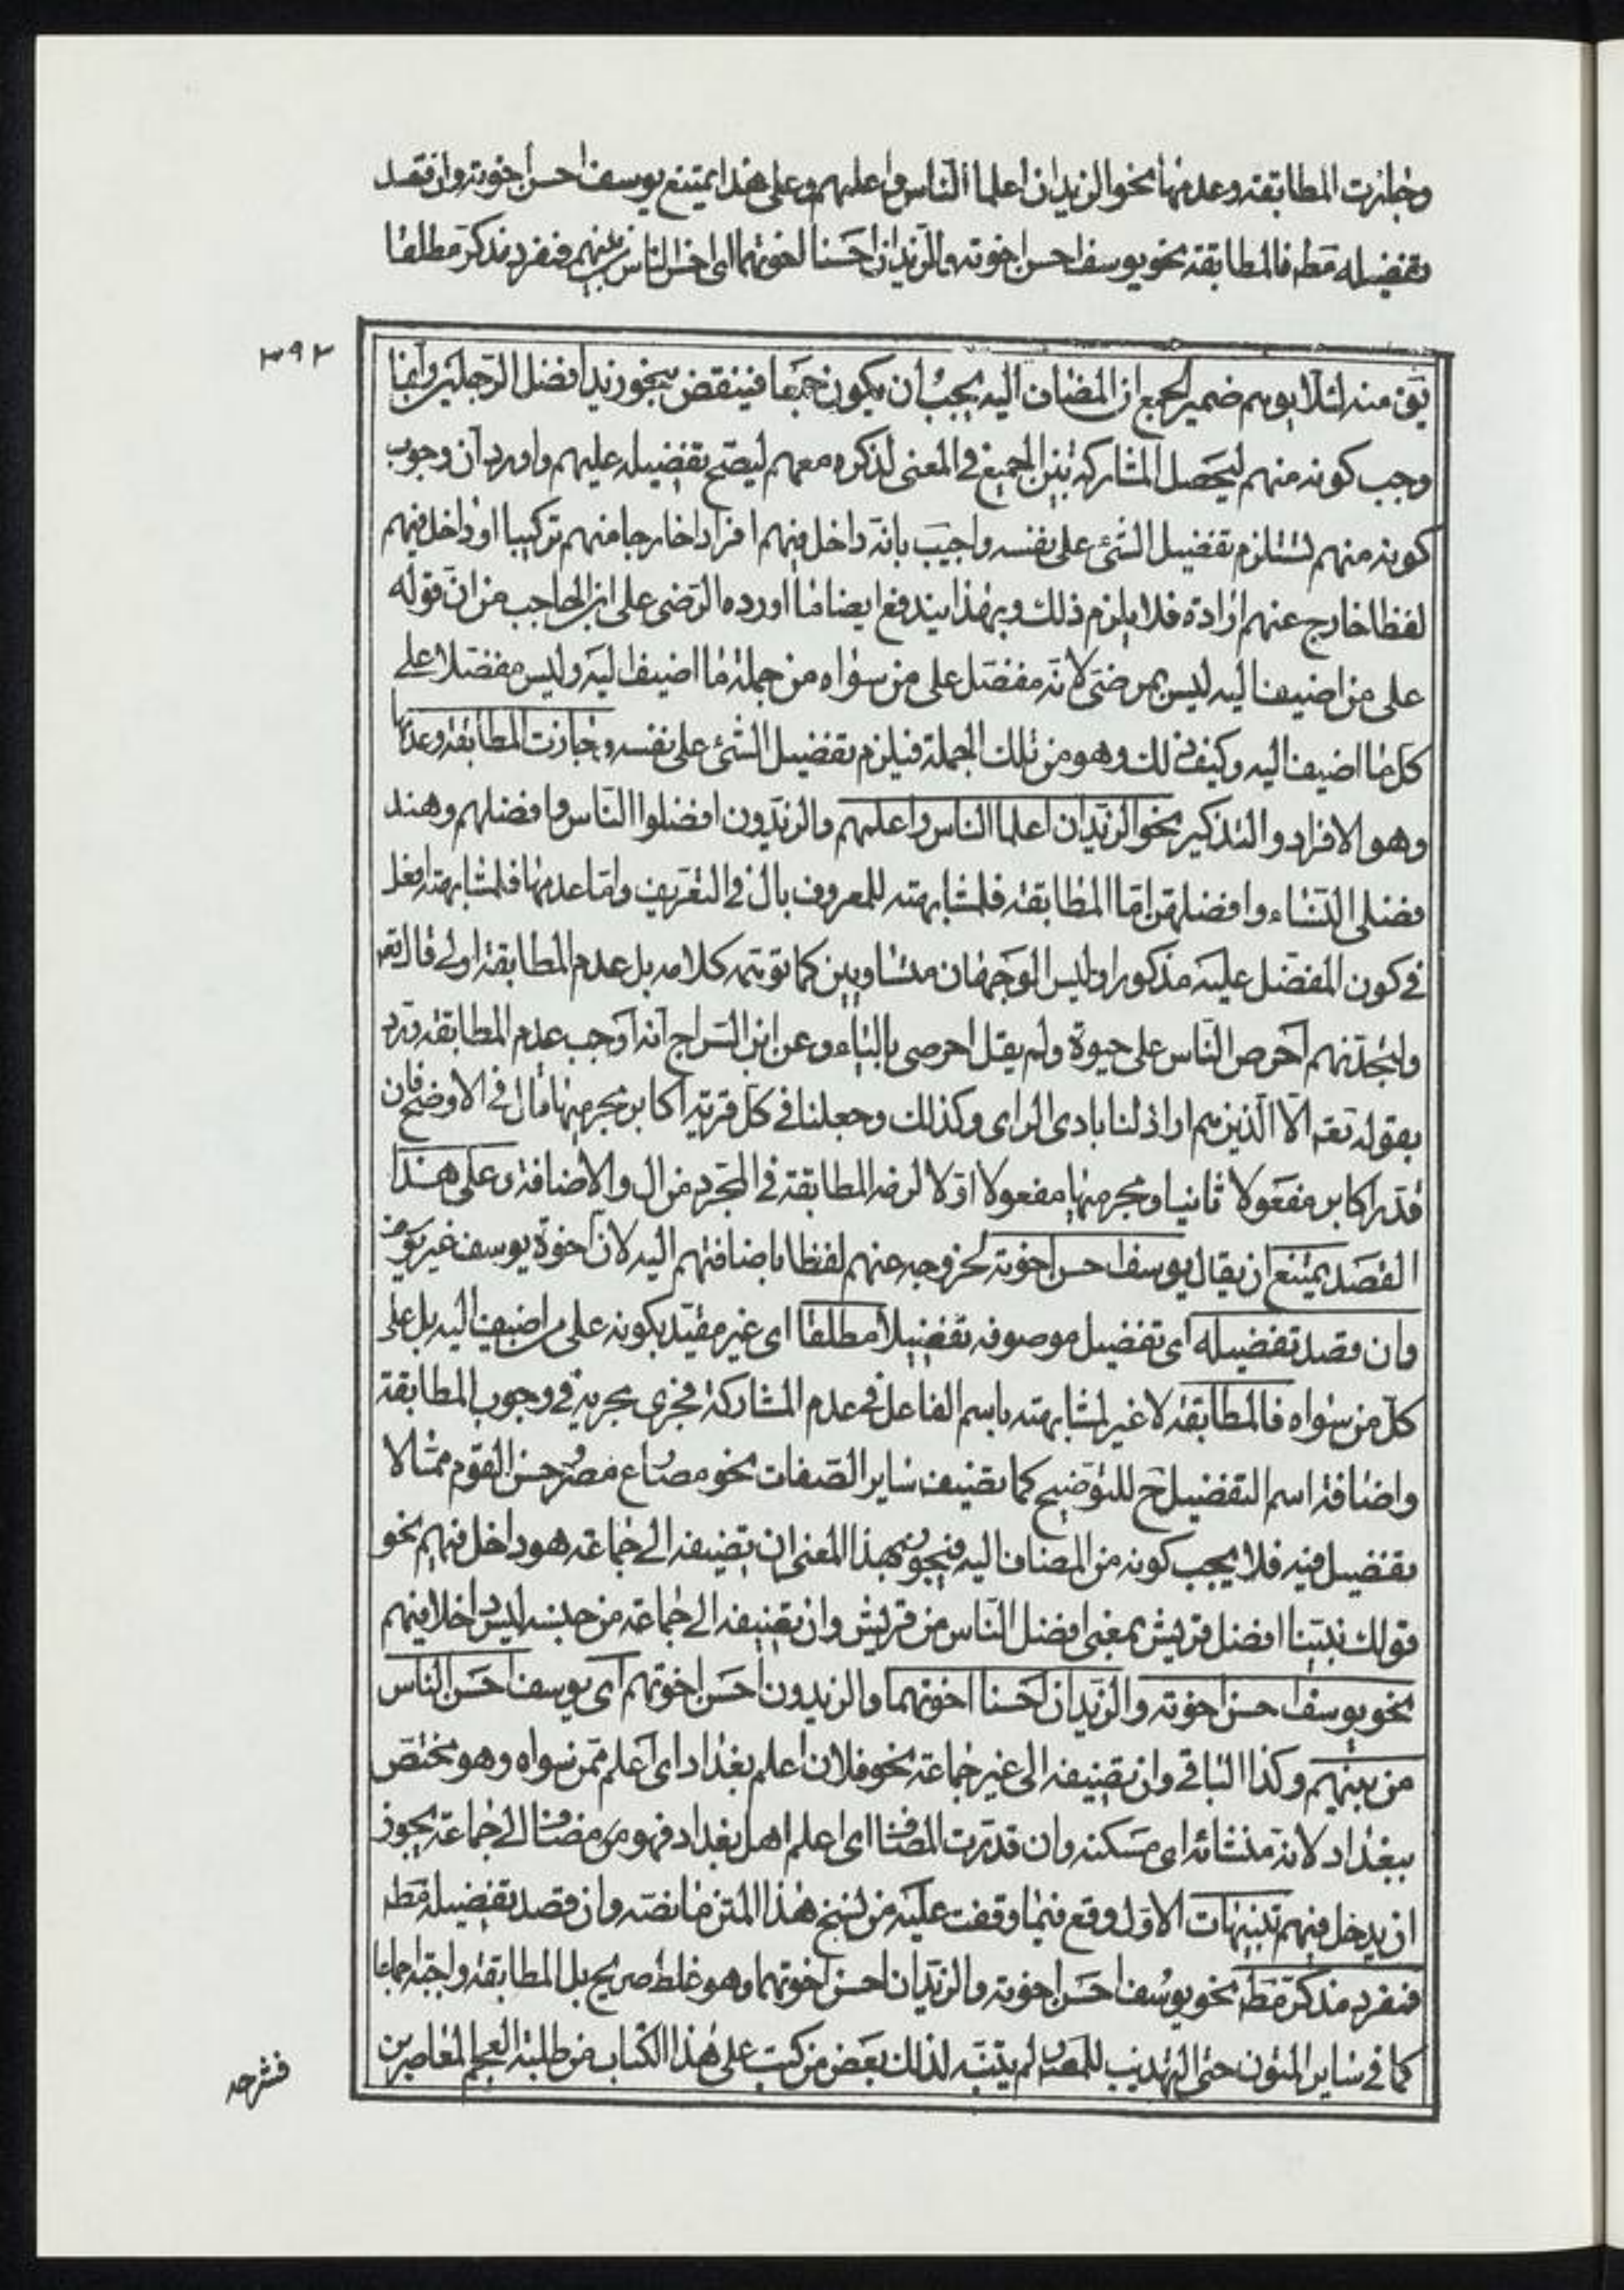 وجازت المطابقة وعدمها نحو الزيدان اعلما الناس واعلمهم وعلى هذا يمتنع يوسف احسن اخوته وان قصد
تفضيله مط فالمطابقة نحو يوسف احسن اخوته والزيدان احسنا اخوتهما اى احسن الناس بينهم فمفرد مذكر مطلقا
٣٩٢
يق منه لئلا يوهم ضمير الجمع ان المضاف اليه يجب ان يكون جمعا فينتقض بنحو زيد افضل الرجلين وانما
وجب كونه منهم ليحصل المشاركة بين الجميع فى المعنى لذكره معهم ليصح تفضيله عليهم واورد ان وجوب
كونه منهم يستلزم تفضيل الشئ على نفسه واجيب بانه داخل فيهم افرادا خارجا منهم تركيبا او داخل فيهم
لفظا خارج عنهم ارادة فلا يلزم ذلك وبهذا يندفع ايضا ما اورده الرضى على ابن الحاجب من ان قوله
على من اضيف اليه ليس بمرضى لانه مفضل على من سواه من جملة ما اضيف اليه وليس مفضلا على
كل ما اضيف اليه وكيف ذلك وهو من تلك الجملة فيلزم تفضيل الشئ على نفسه وجازت المطابقة وعدمها
وهو الافراد والتذكير نحو الزيدان اعلما الناس واعلمهم والزيدون افضلوا الناس وافضلهم وهند
فضلى النساء وافضلهن اما المطابقة فلمشابهته للمعروف بال فى التعريف واما عدمها فلمشابهته افعل
فى كون المفضل عليه مذكورا وليس الوجهان متساويين كما توهمه كلامه بل عدم المطابقة اولى قال تعم
ولتجدنهم احرص الناس على حيوة ولم يقل احرصى بالياء وعن ابن السراج انه اوجب عدم المطابقة ويرد
بقوله تعم الا الذين هم اراذلنا بادى الراى وكذلك وجعلنا فى كل قرية اكابر مجرميها قال فى الاوضح فان
قدر اكابر مفعولا ثانيا ومجرميها مفعولا اولا لزمه المطابقة فى المجرد من ال والاضافة وعلى هذا
القصد يمتنع ان يقال يوسف احسن اخوته لخروجه عنهم لفظا باضافتهم اليه لان اخوة يوسف غير يوسف
وان قصد تفضيله اى تفضيل موصوفه تفضيلا مطلقا اى غير مقيد بكونه على من اضيف اليه بل على
كل من سواه فالمطابقة لا غير لمشابهته باسم الفاعل فى عدم المشاركة فجرى مجريه فى وجوب المطابقة
واضافة اسم التفضيل ح للتوضيح كما تضيف ساير الصفات نحو مصارع مصر وحسن القوم مما لا
تفضيل فيه فلا يجب كونه من المضاف اليه فيجوز بهذا المعنى ان تضيفه الى جماعة هو داخل فيهم نحو
قولك نبينا افضل قريش بمعنى افضل الناس من قريش وان تضيفه الى جماعة من جنسه ليس داخلا فيهم
نحو يوسف احسن اخوته والزيدان احسنا اخوتهما والزيدون احسن اخوتهم اى يوسف احسن الناس
من بينهم وكذا الباقى وان تضيفه الى غير جماعة نحو فلان اعلم بغداد اى اعلم ممن سواه وهو مختص
ببغداد لانه منشائه اى مسكنه وان قدرت المضاف اى اعلم اهل بغداد فهو مضاف الى جماعة يجوز
ان يدخل فيهم تنبيهات الاول وقع فيما وقفت عليه من نسخ هذا المتن ما نصه وان قصد تفضيله مط
فمفرد مذكر مط نحو يوسف احسن اخوته والزيدان احسن اخوتهما وهو غلط صريح بل المطابقة واجبة اجماعا
كما فى ساير المتون حتى التهذيب للمص لم يتنبه لذلك بعض من كتب على هذا الكتاب من طلبة العجم المعاصرين
فشرحه